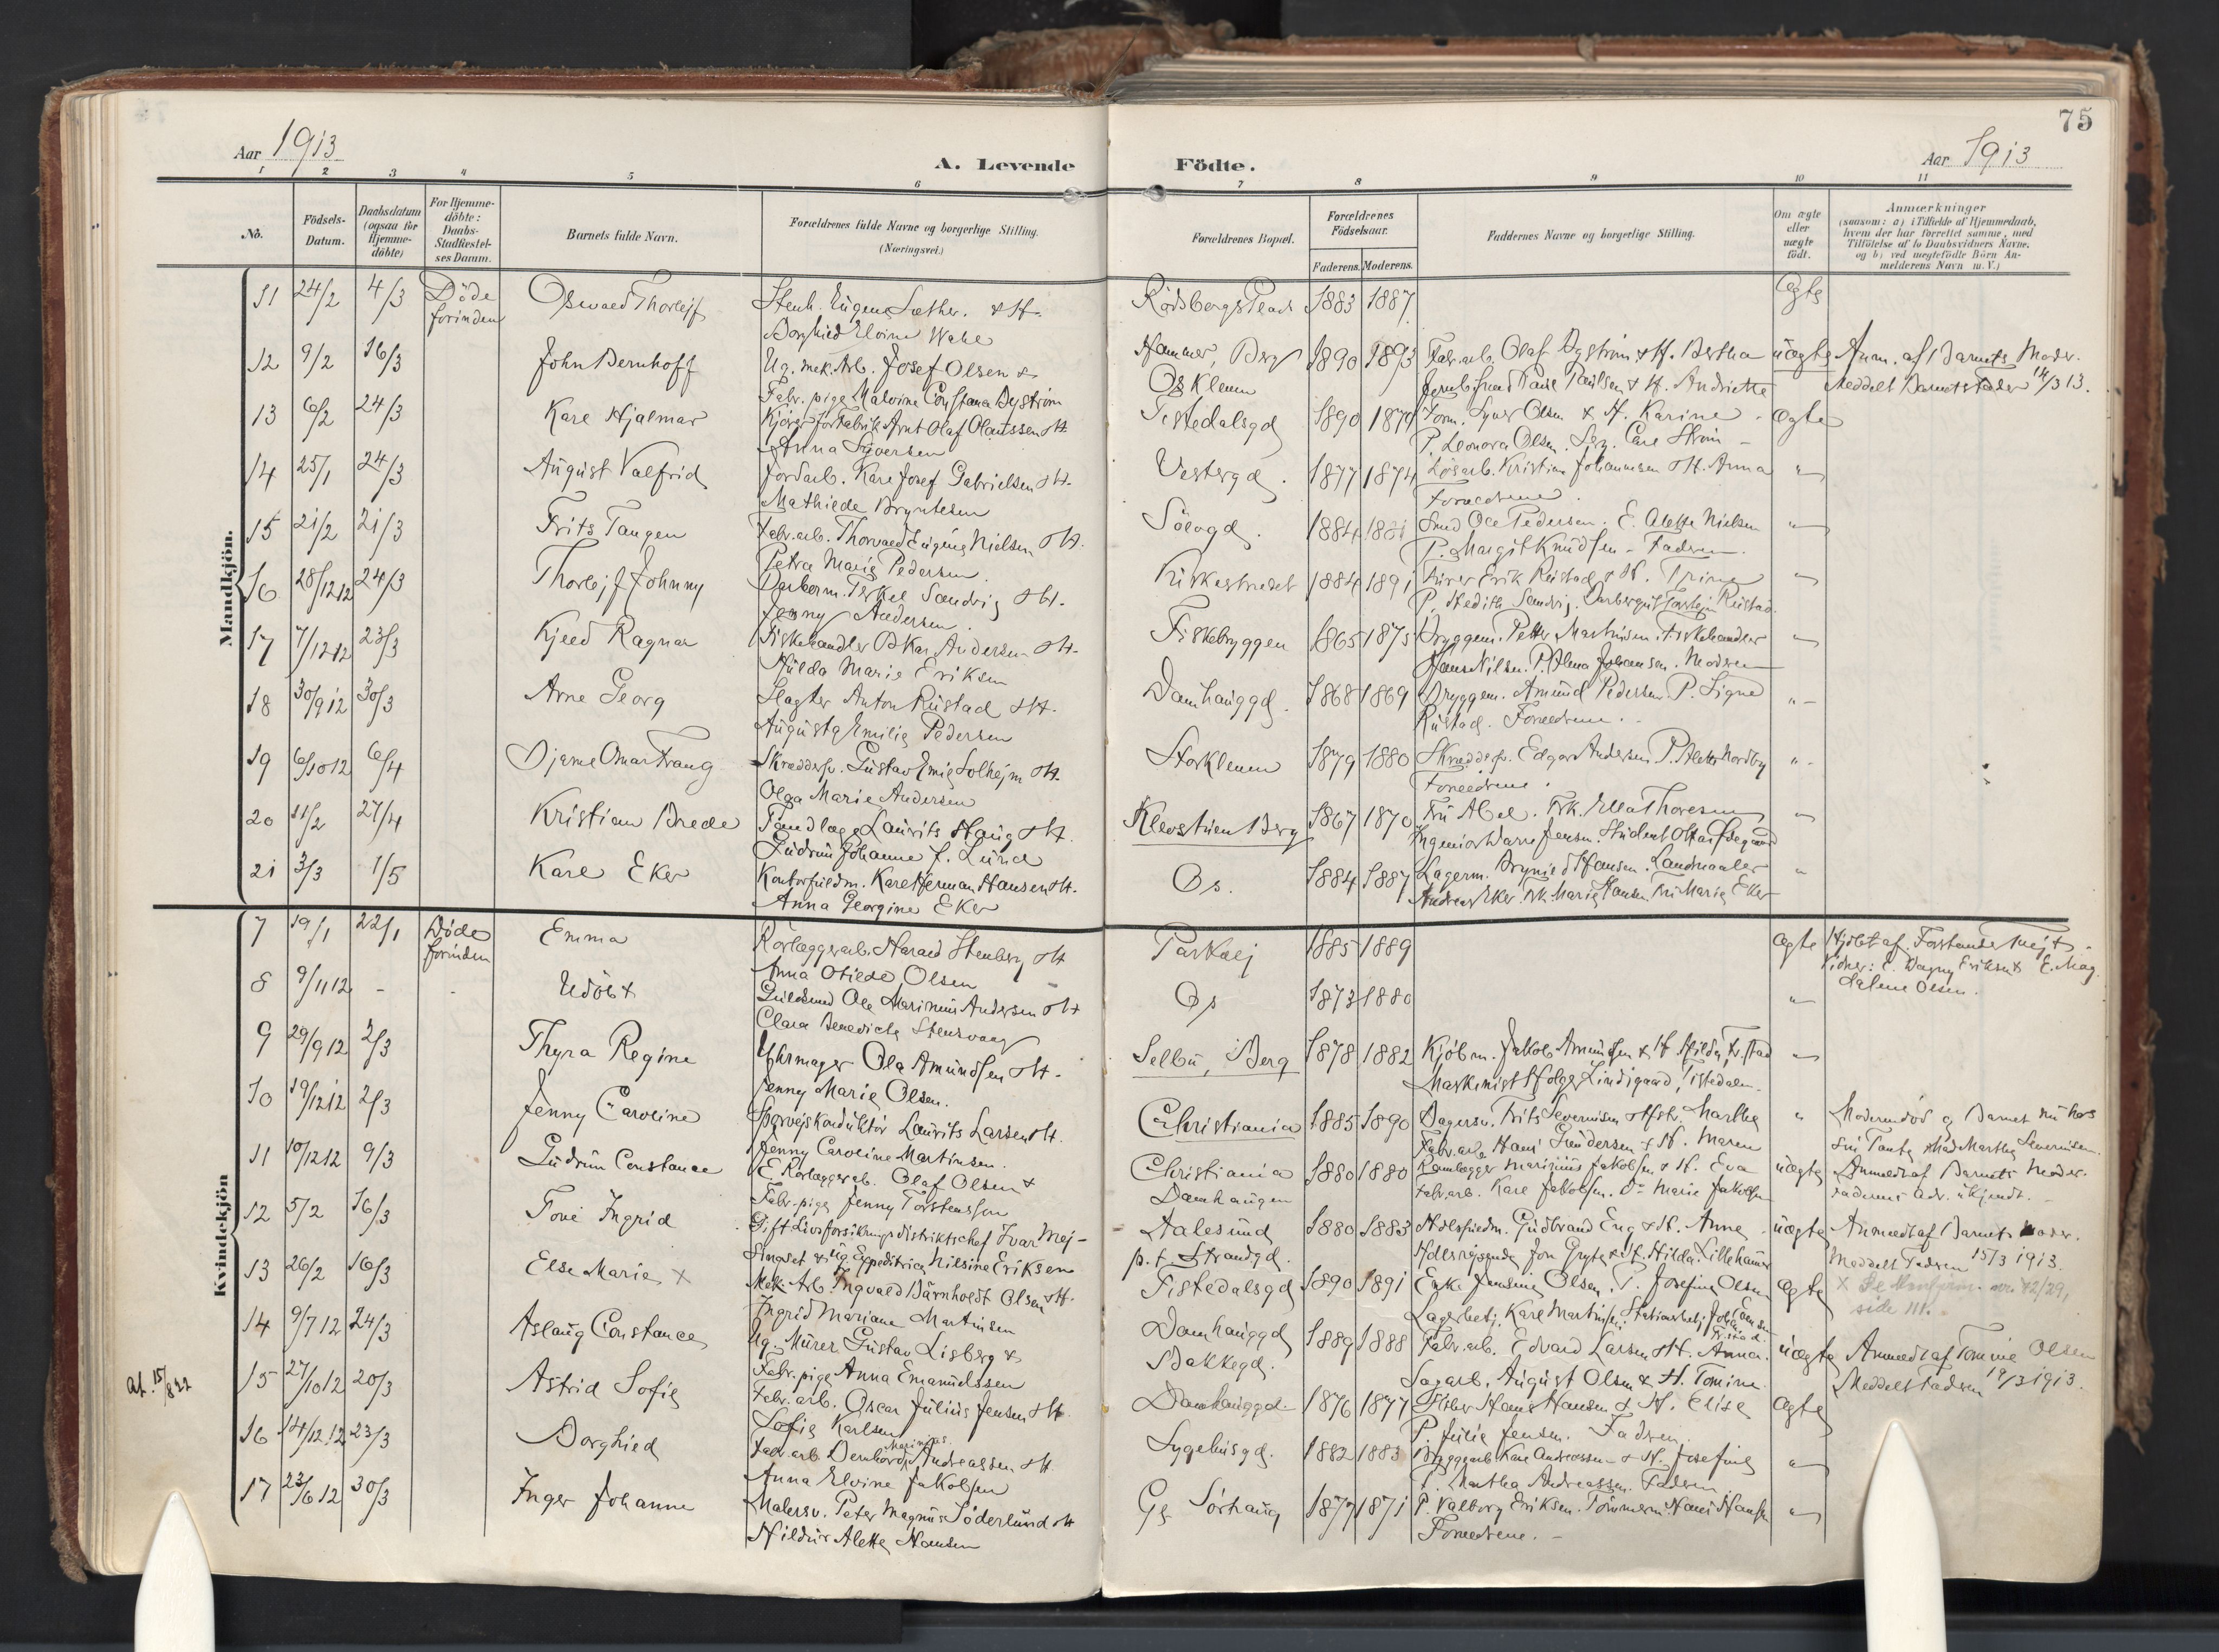 75
Aar 1913
A. Levende Födte.
Aar 1913
1 2 3 4 5 6 7 8 9 10 11
No.
Födsels-Datum.
Daabsdatum (ogsaa for Hjemmedöbte)
For Hjemmedöbte: Daabs-Stadfæstelses Datum.
Barnets fulde Navn.
Forældrenes fulde Navne og borgerlige Stilling. (Næringsvei.)
Forældrenes Bopæl.
Forældrenes Födselsaar.
Faderens. Moderens.
Faddernes Navne og borgerlige Stilling.
Om ægte eller uægte födt.
Anmærkninger
(saasom: a) i Tilfælde af Hjemmedaab,
hvem der har forrettet samme, med
Tilföielse af to Daabsvidners Navne.
og b) ved uægtefödte Börn An-
melderens Navn m. V.)
Mandkjön.
11 24/2 4/3 Döde forinden Oswald Thorlejf Stenh. Eugen Sæther. & H. Rödsbergs Plads 1883 1887 Ægte
Borghild Elvine
12 9/2 16/3 John Bernhoff Ug. mek. Arb. Josef Olsen & Hammer, Berg 1890 1893 Fabr. arb. Olaf Byström & H. Bertha uægte Anm. af Barnets Moder.
Fabr. pige Malvine Constance Byström Os Klemm Meddelt Barnets Fader 14/3 13.
13 6/2 24/3 Karl Hjalmar Kjörer for Fabrik Arnt Olaf Olaussen & H. Tistedalsgd 1890 Olsen & H. Karine ægte
Anna P. Leonora Olsen.
14 25/1 24/3 August Valfrid Jordarb. Karl Josef Gabrielsen & H. Vestergd. 1877 1874 Lösarb. Kristian Johannesen & H. Anna "
Mathilde Bryntesen Forældrene.
15 21/2 21/3 Frits Tangen Fabr. arb. Thorvald Eugene Nielsen & H. 1884 1881 Smed Ole Pedersen. E. Alette Nielsen "
Petra Marie Pedersen. P. Margit Knudsen - Faderen.
16 28/12 12 24/3 Thorlejf Johnny Barberm. Terkel Sandvig & H. Kirkestrædet 1884 1891 Murer Erik Rustad & H. Trine "
Jenny Andersen. P. Hedith Sandvig.
17 7/12 12 23/3 Kjeld Ragnar Fiskehandler Oskar Andersen & H. Fiskebryggen 1865 1875 Bryggem. Petter Martinsen. Fiskehandler "
Hulda Marie Eriksen Hans Nilsen. P. Alma Johansen. Moderen
18 30/9 12 30/3 Arne Georg Slagter Anton Rustad & H. Damhauggd. 1868 1869 Bryggem. Amund Pedersen P. Signe "
Augusta Emilie Pedersen Rustad. Forældrene.
19 6/10 12 6/4 Bjarne Omar Trang Skræddersv. Gustav Emil Solhejm & H. Storklemm 1879 1880 Skræddersv. Edgar Andersen. P. Alette Nordby "
Olga Marie Andersen Forældrene.
20 11/2 27/4 Kristian Brede Tandlæge Laurits Haug & H. Klevstuen Berg 1867 1870 Fru Abel. Frk. Ella Thoresen "
Gudrun Johanne J. Lund Ingeniör Jensen. Student
21 3/3 1/5 Karl Eker Kontorfuldm. Karl Herman Hansen & H. Os. 1884 1887 Lagerm. Hansen. Landmaaler "
Anna Georgine Eker Andreas Eker. Frk. Marie Hansen Fru Marie Eker
Kvindekjön
7 19/1 22/1 Döde forinden Emma Rörlæggerarb. Harald Stenberg & H. Parkvej 1885 1889 ægte Hjdbt af.
Anna Otilde Olsen Vidner: E. Dagny Eriksen & E. Mag-
dalene Olsen.
8 9/11 12 - - Udöbt Guldsmed Ole Marinius Andersen & H. Os 1873 1880 "
Clara Benedicte
9 29/9 12 2/3 Thyra Regine Uhrmager Ole Amundsen & H. Selbu, Berg 1878 1882 Kjöbm. Jakob Amundsen & H Hilda, Fr.stad "
Jenny Marie Olsen. Maskinist Holger Lindgaard, Tistedalen.
10 19/12 12 2/3 Jenny Caroline Sporvejskonduktör Laurits Larsen & H. Christiania 1885 1890 Bagersv. Frits Severinsen & Hstr. Martha " Moderen död og Barnet nu hos
Jenny Caroline Martinsen. Fabr. arb. Hans Gundersen & H. Maren sin Tante Mad Martha Severinsen.
11 10/12 12 9/3 Gudrun Constance E. Rörlæggerarb. Olaf Olsen & Christiania 1880 1880 Marinius Jakobsen & H. Eva uægte Anmeldt af Barnets Moder.
Fabr. pige Jenny Torstensen Damhaugen Fabr. arb. Karl Jakobsen. Do Marie Jakobsen Faderens Adr. ukjendt.
12 5/2 16/3 Tove Ingrid Gift Livsforsikringsdistriktschef Ivar Mej- Aalesund 1880 1883 Gudbrand Eng & H. Anne uægte Anmeldt af Barnets Moder.
& Ug. Expeditrice Nilsine Eriksen p. t. Strandgd. Handelsrejsende Jon Gryte & H. Hilda. Lillehammer Meddelt Faderen 15/3 1913.
13 26/2 16/3 Else Marie × Mek. Arb. Ingvald Bärnholdt Olsen & H. Tistedalsgd 1890 1891 Enke Jensine Olsen. P. Josefine Olsen ægte × Se nr. 42/29,
Ingrid Mariane Martinsen Lagerbetj. Karl Martinsen. side 111.
14 9/7 12 24/3 Aslaug Constance Ug. Murer Gustav Lisberg & Damhauggd 1889 1888 Fabr. arb. Edvard Larsen & H. Anna. uægte Anmeldt af Tomine Olsen
Fabr. pige Anna Emanuelssen Bakkegd. Sagarb. August Olsen & H. Tomine. Meddelt Faderen 19/3 1913.
At. 15/8 22
15 27/10 12 20/3 Astrid Sofie Fabr. arb. Oscar Julius Jensen & H. Damhauggd. 1876 1877 Hans Hansen & H. Elise ægte
Sofie Karlsen P. Julie Jensen. Faderen.
16 14/12 12 23/3 Borghild Fabr. arb. Bernhard Marinius Andreassen & H. Sygehusgd. 1882 1883 Bryggearb. Karl Andreassen & H. Josefine "
Anna Elvine Jakobsen P. Martha Andreassen. Faderen
17 23/6 12 30/3 Inger Johanne Malersv. Peter Magnus Söderlund & H. Gl. Sörhaug 1877 1871 P. Valborg Eriksen. Tömmerm. Hans Hansen "
Hildur Alette Hansen Forældrene.